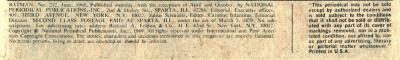 BATMAN, No. 212, June, 1969. Published monthly, with the exception of April and October, by NATIONAL
PERIODICAL PUBLICATIONS, INC., 2nd & Dickey Sts., SPARTA, ILL. 62286. Editorial, Executive offices,
909, THIRD AVENUE, NEW YORK, N. Y. 10022. Julius Schwartz, Editor.
SECOND CLASS POSTAGE PAID AT SPARTA, ILL. under the act of March 3, 1879. No
subscriptions. For advertising rates address Richard A. Feldon & Co., 41 E. 42nd St., New York, N. Y. 10017.
Copyright © National Periodical Publications, Inc., 1969. All rights reserved under International and Pan American
Copyright Conventions. The stories, characters and incidents mentioned in this magazine are entirely fictional.
No actual persons, living or dead, are intended or should be inferred.
"This periodical may not be sold
except by authorized dealers and
is sold subject to the conditions
that it shall not be sold or distrib-
uted with any part of its cover or
markings removed, nor in a muti-
lated condition, nor affixed to, nor
as part of any advertising, literary
or pictorial matter whatsoever."
Printed in U.S.A.